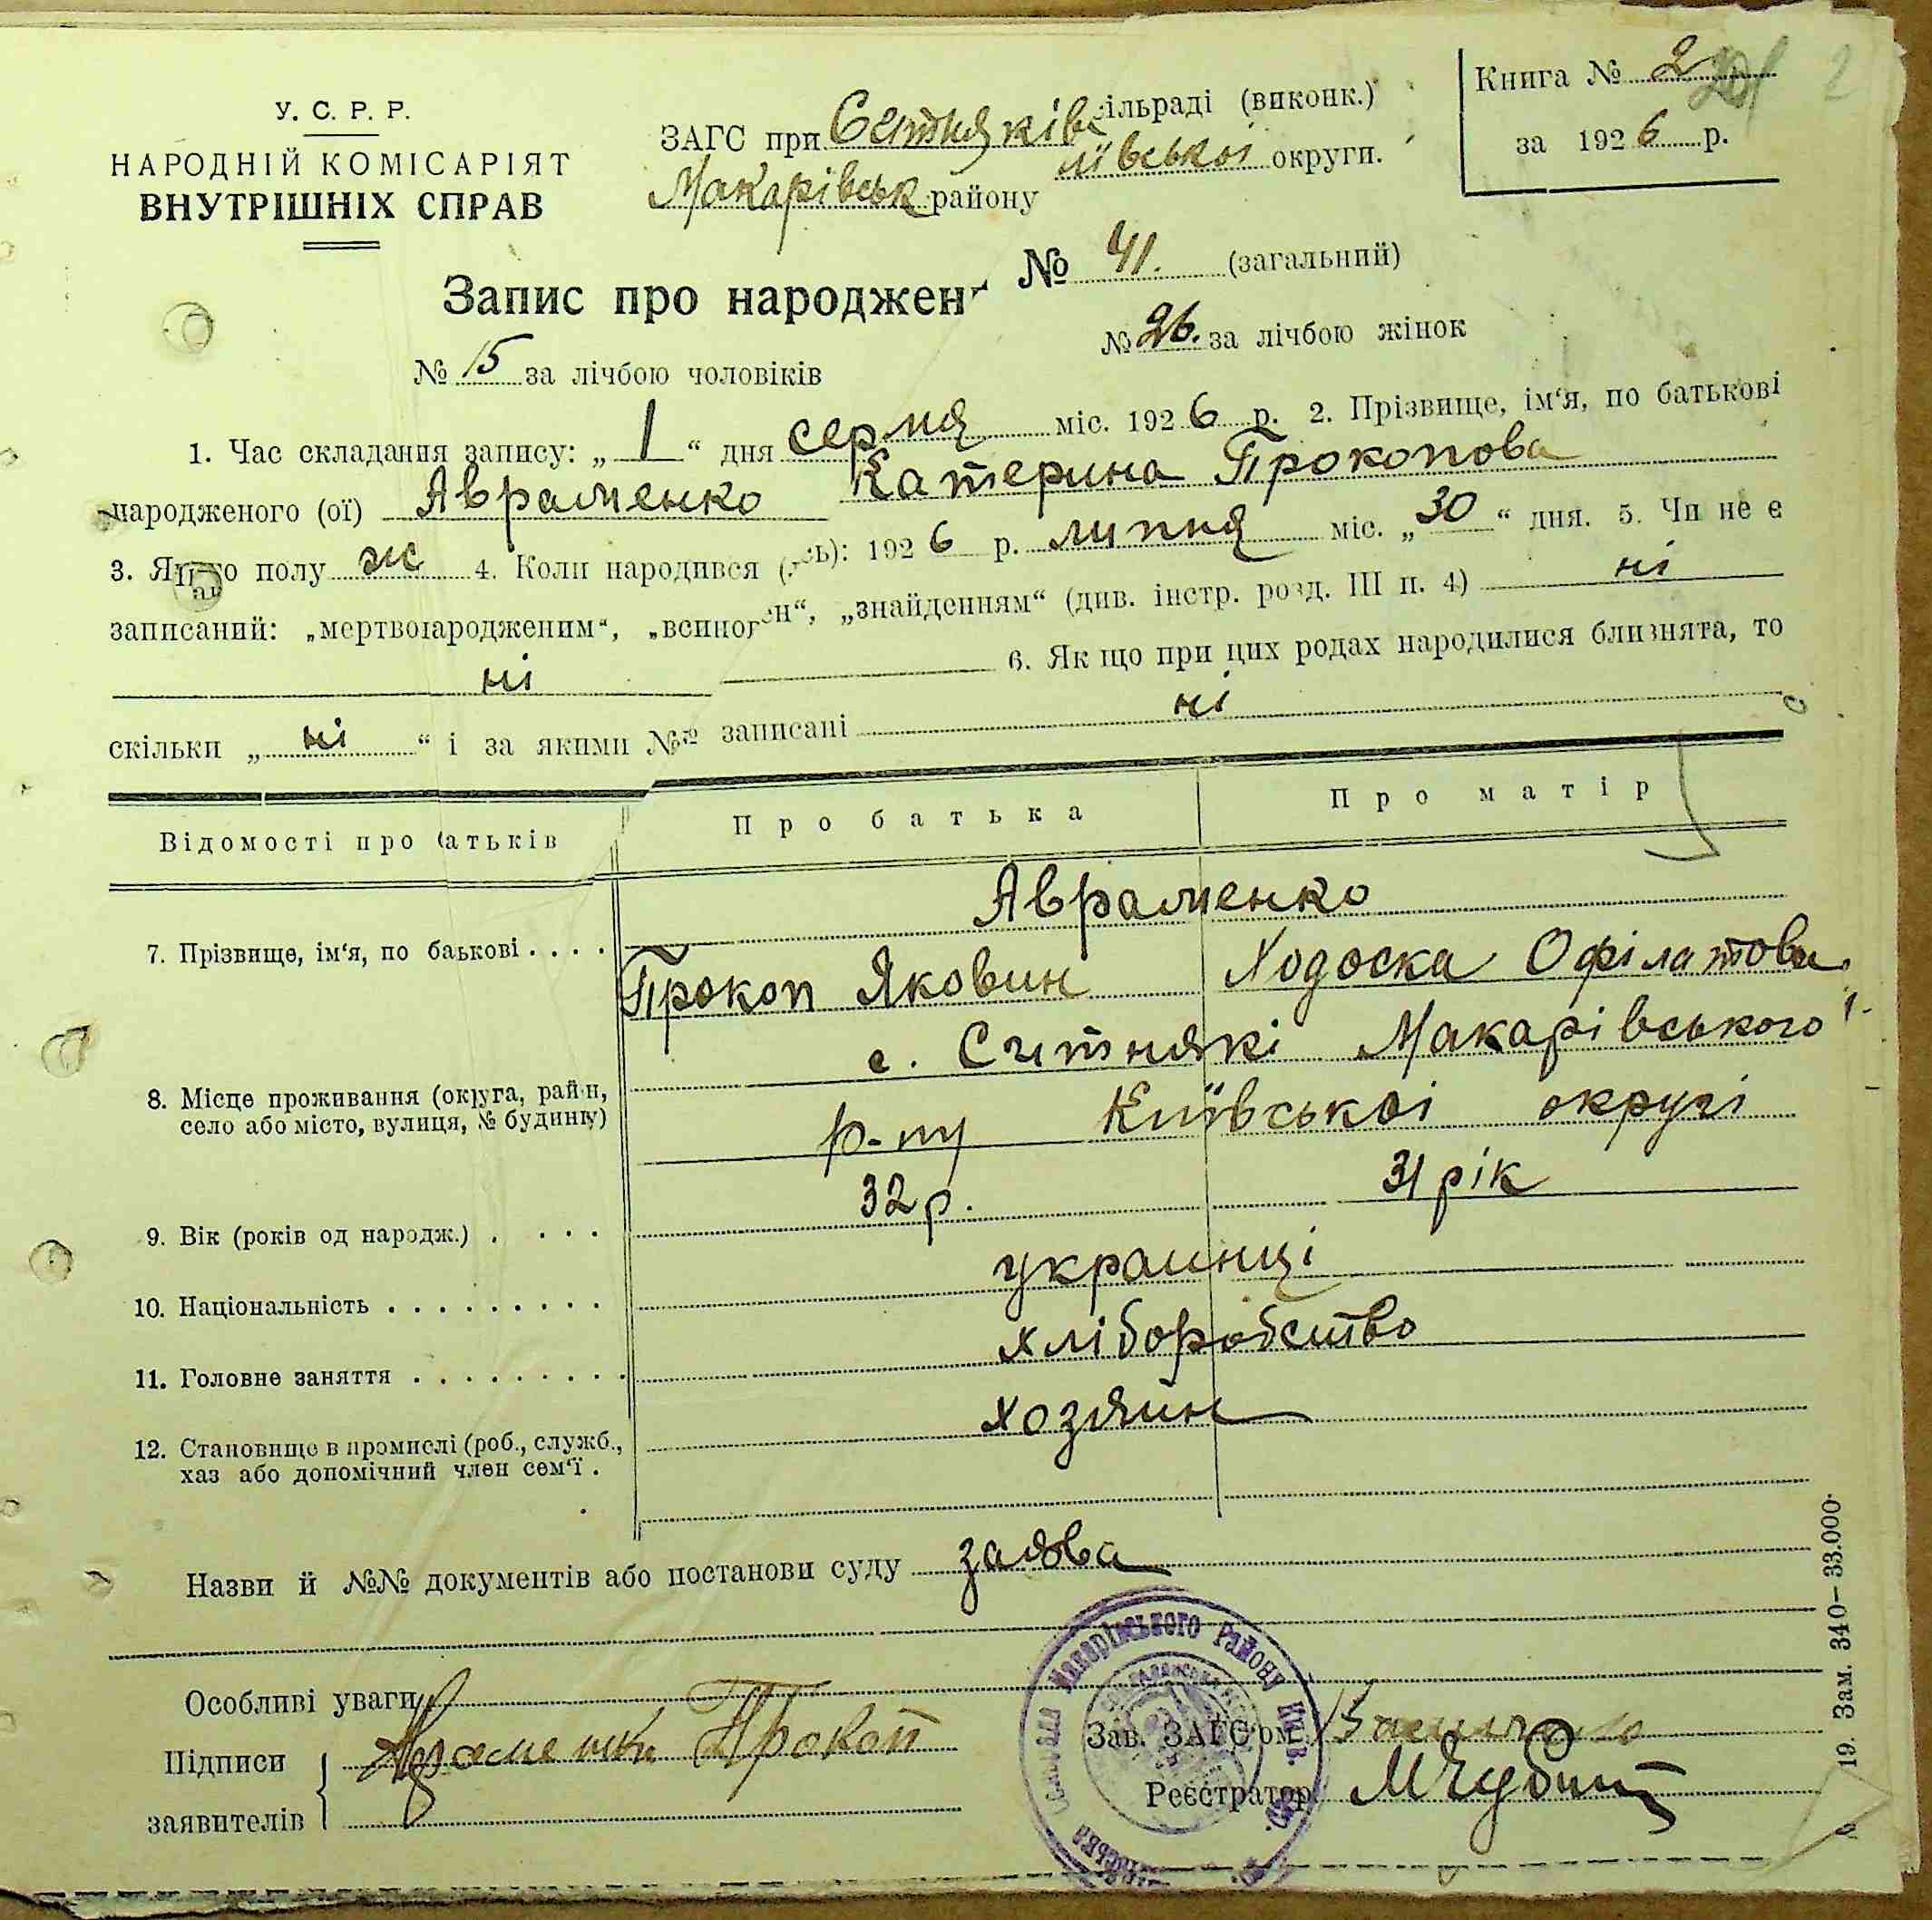 Книга № 2
за 1926 р.
У. С. Р. Р.
НАРОДНІЙ КОМІСАРІЯТ
ВНУТРІШНІХ СПРАВ
ЗАГС при Ситняків сільраді (виконк.)
Макарівськ району Київської округи.
Запис про народжен
№ 41. (загальний)
№ 15 за лічбою чоловіків
№ 26. за лічбою жінок
1. Час складання запису: „ 1 “ дня серпня міс. 1926 р. 2. Прізвище, ім‘я, по батькові
народженого (ої) Авраменко Катерина Прокопова
3. Якого полу ж 4. Коли народився (лась): 1926 р. липня міс. „ 30 “ дня. 5. Чи не є
записаний: „мертвонародженим“, „знайденням“ (див. інстр. розд. III п. 4) ні
ні 6. Як що при цих родах народилися близнята, то
скільки „ ні “ і за якими №№ записані ні
Відомості про батьків
Про батька
Про матір
Авраменко
7. Прізвище, ім‘я, по баькові . . . .
Прокоп Яковин
Ходоска Офілатова
с. Ситнякі Макарівського
8. Місце проживання (округа, район,
село або місто, вулиця, № будинку)
р-ну Київської округі
9. Вік (років од народж.) . . . . .
32 р.
31 рік
10. Національність . . . . . . . . .
украинці
11. Головне заняття . . . . . . . . .
хліборобство
12. Становище в промислі (роб., служб.,
хаз або допомічний член сем‘ї .
хозяин
Назви й №№ документів або постанови суду заява
Особливі уваги
Підписи
заявителів
Авраменко Прокоп
Зав. ЗАГС‘ом
Реєстратор
Макарівського Району Київ.
19. Зам. 340—33.000.